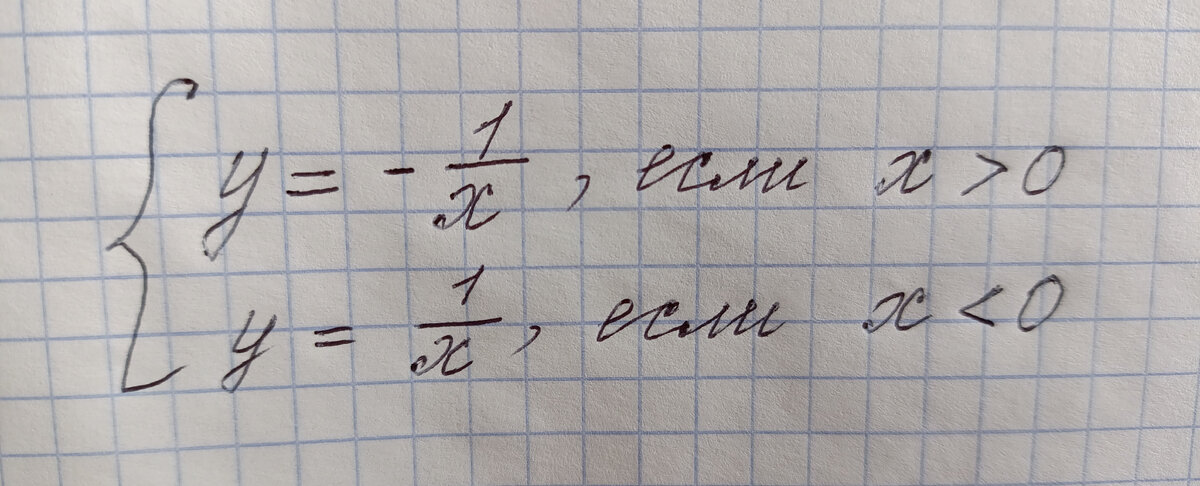 y = - 1/x, если x > 0
y = 1/x, если x < 0